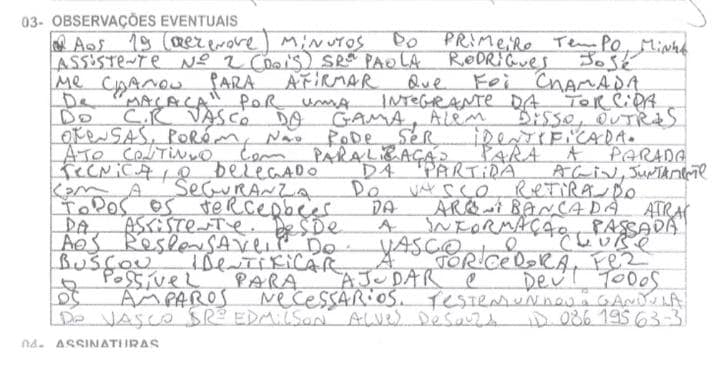 03- OBSERVAÇÕES EVENTUAIS
Aos 19 (DEZENOVE) MINUTOS DO PRIMEIRO TEMPO, MINHA
ASSISTENTE Nº 2 (DOIS) SRª PAOLA RODRIGUES JOSÉ
ME CHAMOU PARA AFIRMAR QUE FOI CHAMADA
DE "MACACA" POR UMA INTEGRANTE DA TORCIDA
DO C.R VASCO DA GAMA, ALEM DISSO, OUTRAS
OFENSAS, PORÉM, NÃO PODE SER IDENTIFICADA.
ATO CONTINUO COM PARALIZAÇÃO PARA A PARADA
TECNICA, O DELEGADO DA PARTIDA AGIU, JUNTAMENTE
COM A SEGURANZA DO VASCO RETIRANDO
TODOS OS TORCEDORES DA ARQUIBANCADA ATRAS
DA ASSISTENTE. DESDE A INFORMAÇÃO PASSADA
AOS RESPONSAVEIS DO VASCO, O CLUBE
BUSCOU IDENTIFICAR A TORCEDORA, FEZ
O POSSÍVEL PARA AJUDAR E DEU TODOS
OS AMPAROS NECESSARIOS. TESTEMUNHOU O GANDULA
DO VASCO SRº EDMILSON ALVES DE SOUZA ID 086 195 63-3
04- ASSINATURAS